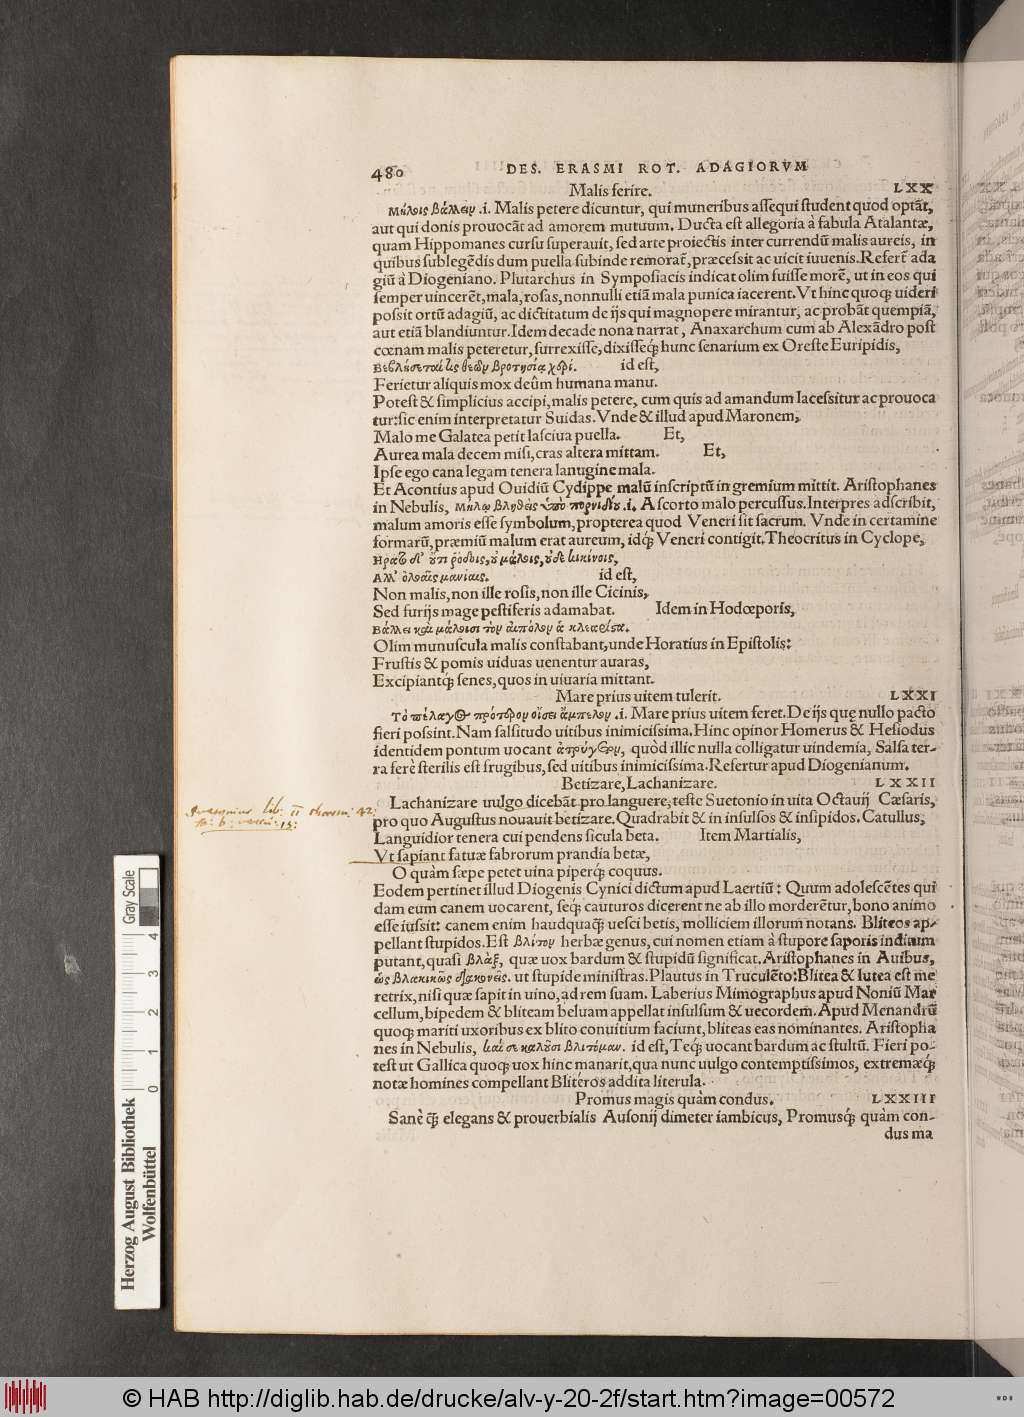 480 DES. ERASMI ROT. ADAGIORVM
Malis ferire. LXX
Μήλοις βάλλειν .i. Malis petere dicuntur, qui muneribus aſſequi ſtudent quod optāt,
aut qui donis prouocāt ad amorem mutuum. Ducta eſt allegoria à fabula Atalantæ,
quam Hippomanes curſu ſuperauit, ſed arte proiectis inter currendū malis aureis, in
quibus ſublegēdis dum puella ſubinde remorat᷑, præceſsit ac uicit iuuenis. Refert᷑ ada
giū à Diogeniano. Plutarchus in Sympoſiacis indicat olim fuiſſe morē, ut in eos qui
ſemper uincerēt, mala, roſas, nonnulli etiā mala punica iacerent. Vt hinc quoq; uideri
poſsit ortū adagiū, ac dictitatum de ijs qui magnopere mirantur, ac probāt quempiā,
aut etiā blandiuntur. Idem decade nona narrat, Anaxarchum cum ab Alexādro poſt
cœnam malis peteretur, ſurrexiſſe, dixiſſeq́; hunc ſenarium ex Oreſte Euripidis,
Βεβλήσεταί τις θεῶν βροτησίᾳ χερί. id eſt,
Ferietur aliquis mox deûm humana manu.
Poteſt & ſimplicius accipi, malis petere, cum quis ad amandum laceſsitur ac prouoca
tur: ſic enim interpretatur Suidas. Vnde & illud apud Maronem,
Malo me Galatea petit laſciua puella. Et,
Aurea mala decem miſi, cras altera mittam. Et,
Ipſe ego cana legam tenera lanugine mala.
Et Acontius apud Ouidiū Cydippe malū inſcriptū in gremium mittit. Ariſtophanes
in Nebulis, Μήλῳ βληθεὶς ὑπὸ πορνιδίου .i. A ſcorto malo percuſſus. Interpres adſcribit,
malum amoris eſſe ſymbolum, propterea quod Veneri ſit ſacrum. Vnde in certamine
formarū, præmiū malum erat aureum, idq́; Veneri contigit. Theocritus in Cyclope,
Ηρατο δ' οὔτι ῥόδοις, οὐ μάλοις, οὐδὲ κικίνοις,
Αλλ' ὀλοαῖς μανίαις. id eſt,
Non malis, non ille roſis, non ille Cicinis,
Sed furijs mage peſtiferis adamabat. Idem in Hodœporis,
Βάλλει καὶ μάλοισι τὸν αἰπόλον ἁ κλεαρίστα.
Olim munuſcula malis conſtabant, unde Horatius in Epiſtolis:
Fruſtis & pomis uiduas uenentur auaras,
Excipiantq́; ſenes, quos in uiuaria mittant.
Mare prius uitem tulerit. LXXI
Τὸ πέλαγος πρότερον οἴσει ἄμπελον .i. Mare prius uitem feret. De ijs quę nullo pacto
fieri poſsint. Nam ſalſitudo uitibus inimiciſsima. Hinc opinor Homerus & Heſiodus
identidem pontum uocant ἀτρύγετον, quòd illic nulla colligatur uindemia, Salſa ter-
ra ferè ſterilis eſt frugibus, ſed uitibus inimiciſsima. Refertur apud Diogenianum.
Betizare, Lachanizare. LXXII
Lachanizare uulgo dicebāt pro languere, teſte Suetonio in uita Octauij Cæſaris,
pro quo Auguſtus nouauit betizare. Quadrabit & in inſulſos & inſipidos. Catullus,
Languidior tenera cui pendens ſicula beta. Item Martialis,
Vt ſapiant fatuæ fabrorum prandia betæ,
O quàm ſæpe petet uina piperq́; coquus.
Eodem pertinet illud Diogenis Cynici dictum apud Laertiū: Quum adoleſcētes qui
dam eum canem uocarent, ſeq́; cauturos dicerent ne ab illo morderētur, bono animo
eſſe iuſsit: canem enim haudquaq̄; ueſci betis, molliciem illorum notans. Bliteos ap-
pellant ſtupidos. Eſt βλίτον herbæ genus, cui nomen etiam à ſtupore ſaporis inditum
putant, quaſi βλὰξ, quæ uox bardum & ſtupidū ſignificat. Ariſtophanes in Auibus,
ὡς βλακικῶς διακονεῖς. ut ſtupide miniſtras. Plautus in Truculēto: Blitea & lutea eſt me
retrix, niſi quæ ſapit in uino, ad rem ſuam. Laberius Mimographus apud Noniū Mar
cellum, bipedem & bliteam beluam appellat inſulſum & uecordem. Apud Menandrū
quoq; mariti uxoribus ex blito conuitium faciunt, bliteas eas nominantes. Ariſtopha
nes in Nebulis, καί σε καλοῦσι βλιτομάμμαν. id eſt, Teq́; uocant bardum ac ſtultū. Fieri po-
teſt ut Gallica quoq; uox hinc manarit, qua nunc uulgo contemptiſsimos, extremæq́;
notæ homines compellant Bliteros addita literula.
Promus magis quàm condus. LXXIII
Sanè q̄; elegans & prouerbialis Auſonij dimeter iambicus, Promusq́; quàm con-
dus ma
lib: II
Gray Scale
4
3
2
1
0
Herzog August Bibliothek
Wolfenbüttel
© HAB http://diglib.hab.de/drucke/alv-y-20-2f/start.htm?image=00572